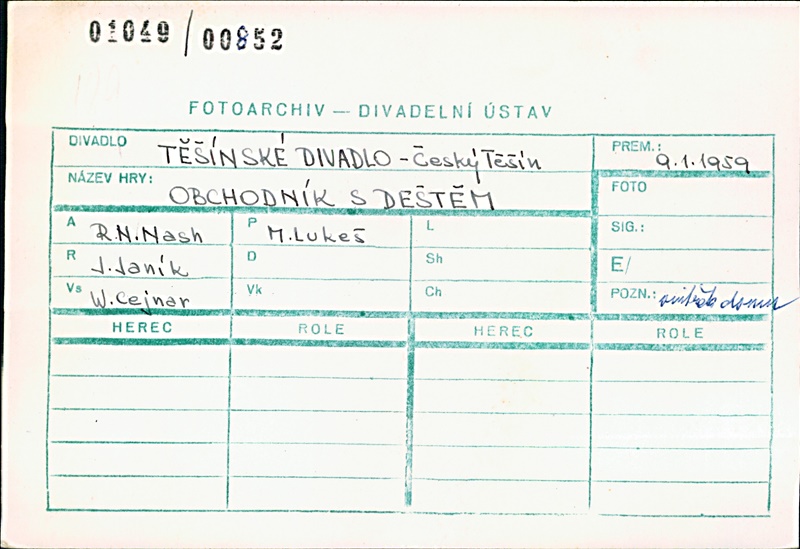 01049/00852
FOTOARCHIV — DIVADELNÍ ÚSTAV
DIVADLO TĚŠÍNSKÉ DIVADLO - Český Těšín
PREM.: 9.1.1959
NÁZEV HRY: OBCHODNÍK S DEŠTĚM
FOTO
A R.N.Nash P M.Lukeš L
SIG.:
R J.Janík D Sh
E/
Vs W.Cejnar Vk Ch
POZN.: vnitřek domu
HEREC ROLE HEREC ROLE